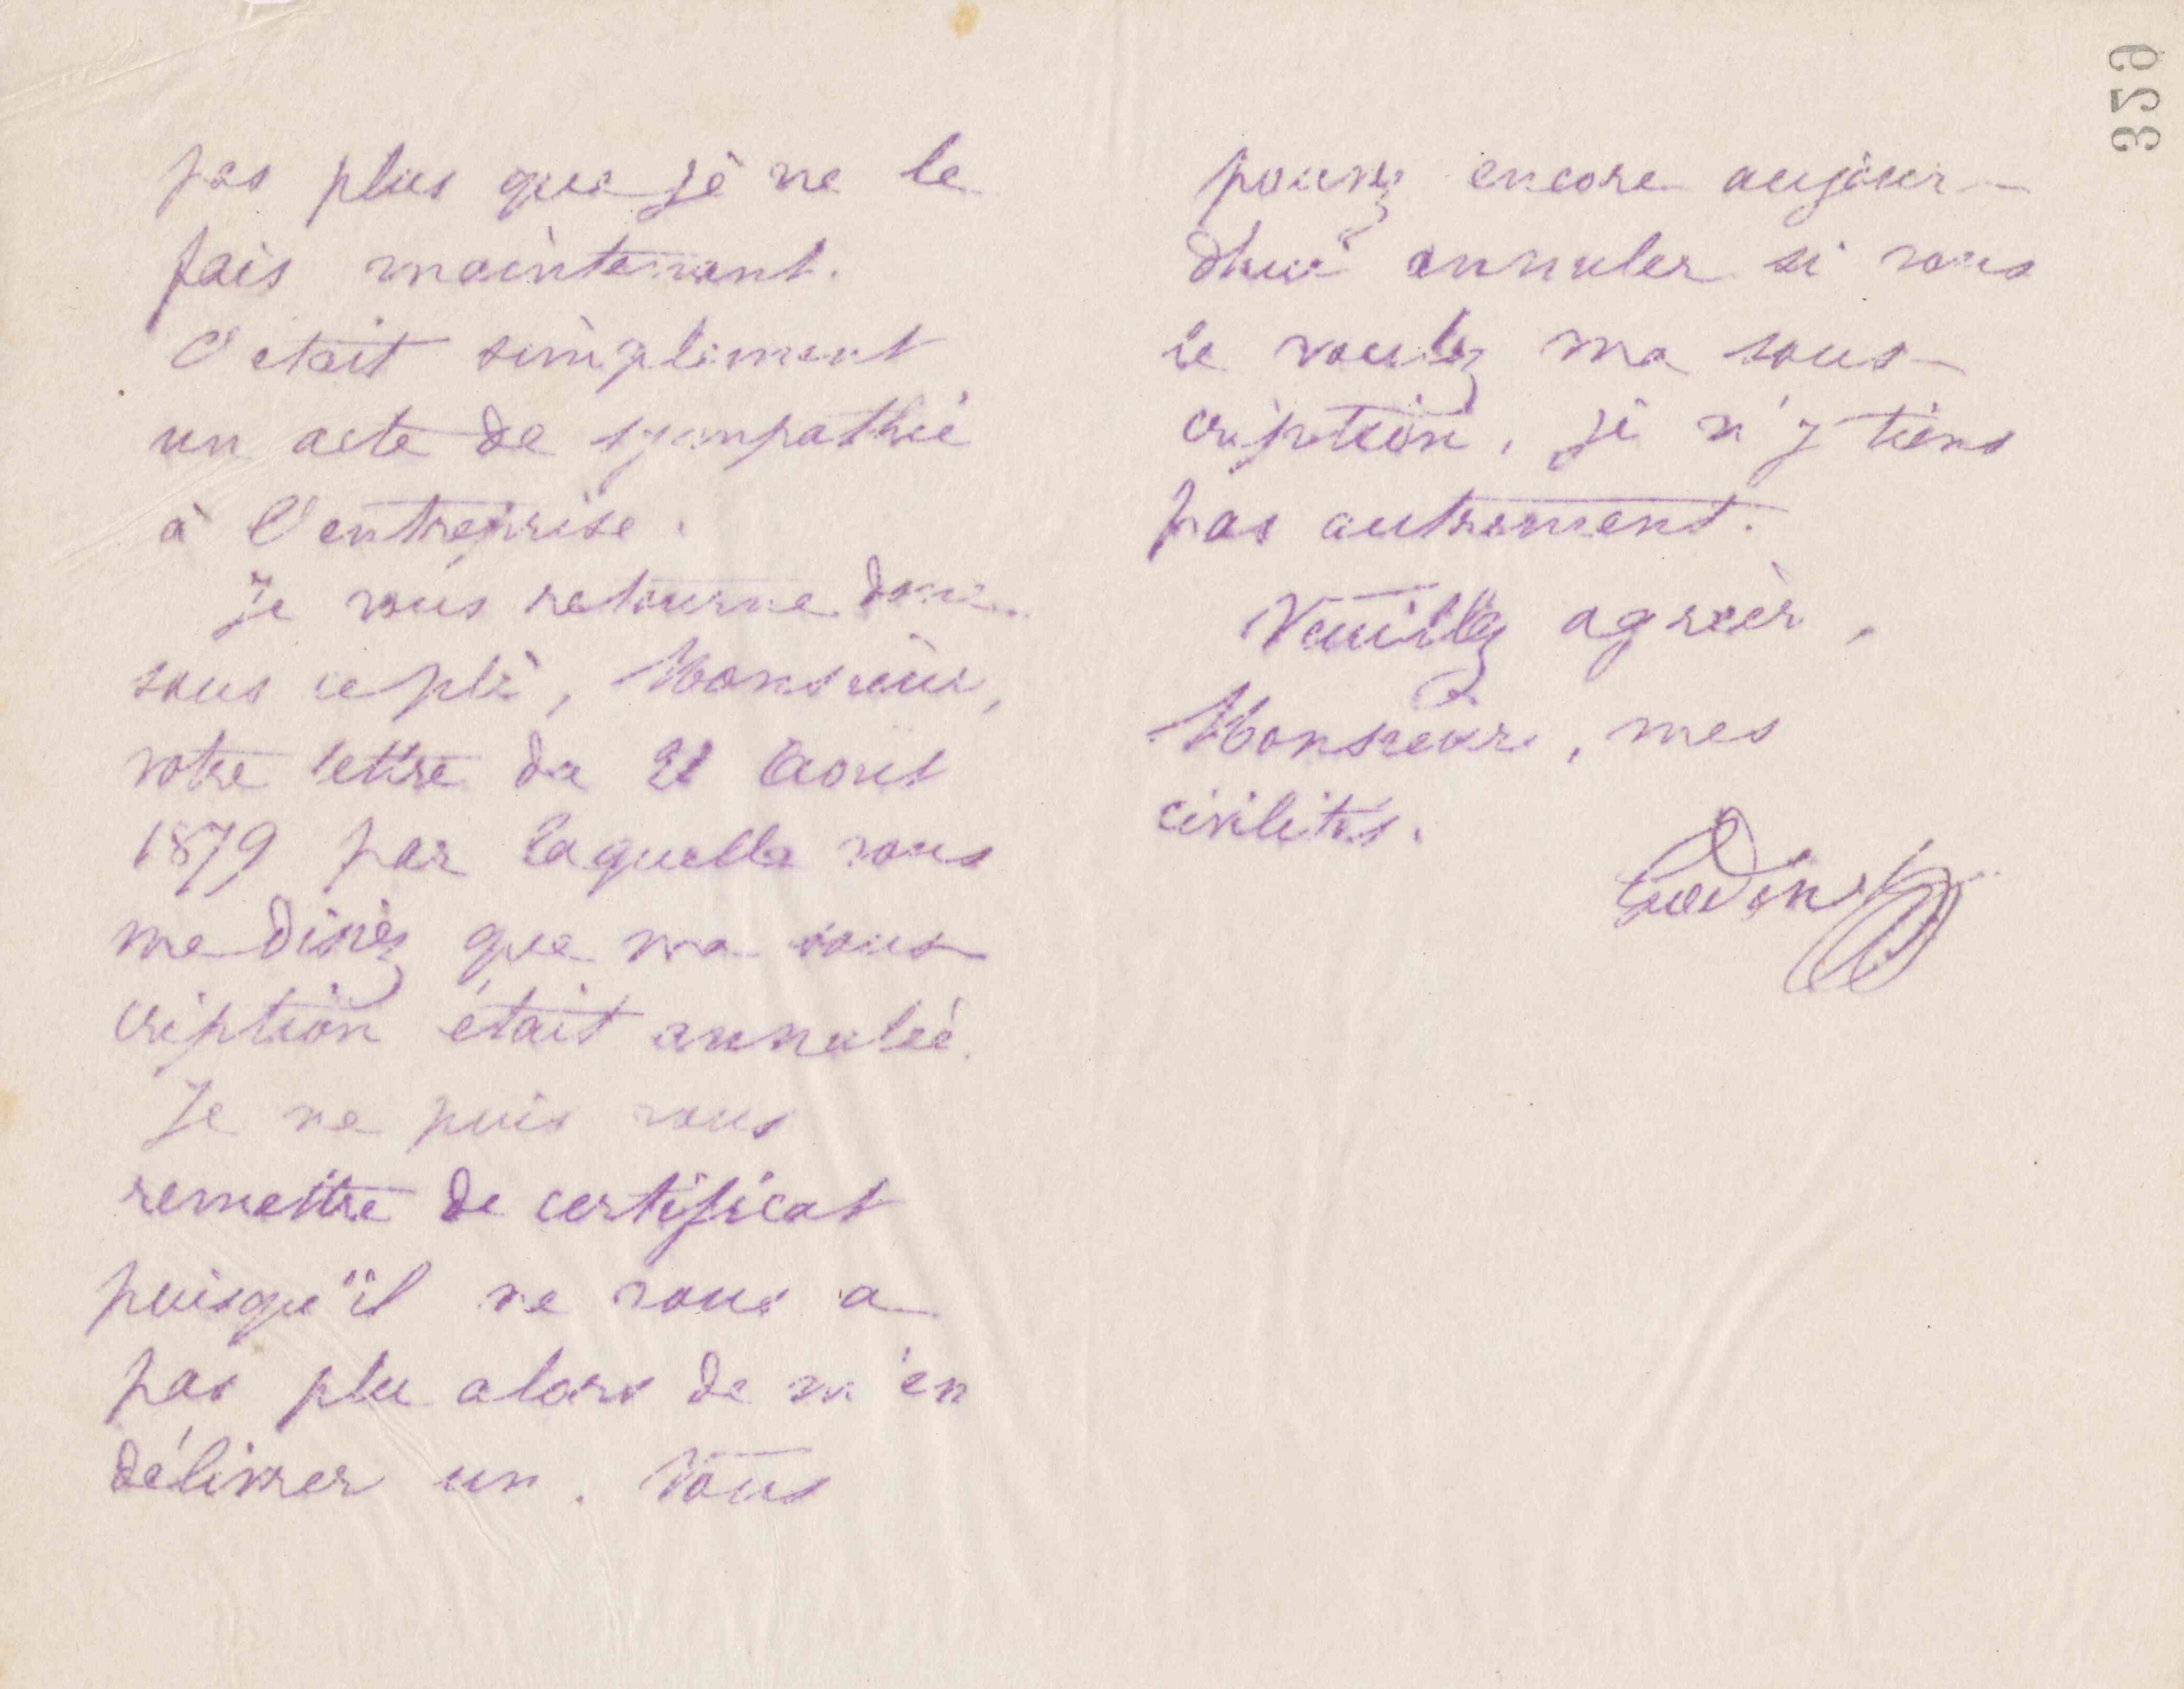 pas plus que je ne le
fais maintenant.
C'était simplement
un acte de sympathie
à l'entreprise.
Je vous retourne donc
sous ce pli, Monsieur,
votre lettre du 21 Aout
1879 par laquelle vous
me disiez que ma sous-
cription était annulée.
Je ne puis vous
remettre de certificat
puisqu'il ne vous a
pas plu alors de m'en
délivrer un. Vous
pouvez encore aujour-
d'hui annuler si vous
le voulez ma sous-
cription, je n'y tiens
pas autrement.
Veuillez agréer,
Monsieur, mes
civilités.
Godin
329